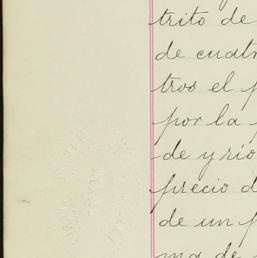 trito de
de cuatr
tros el p
por la
de y rio
precio d
de un p
ma de